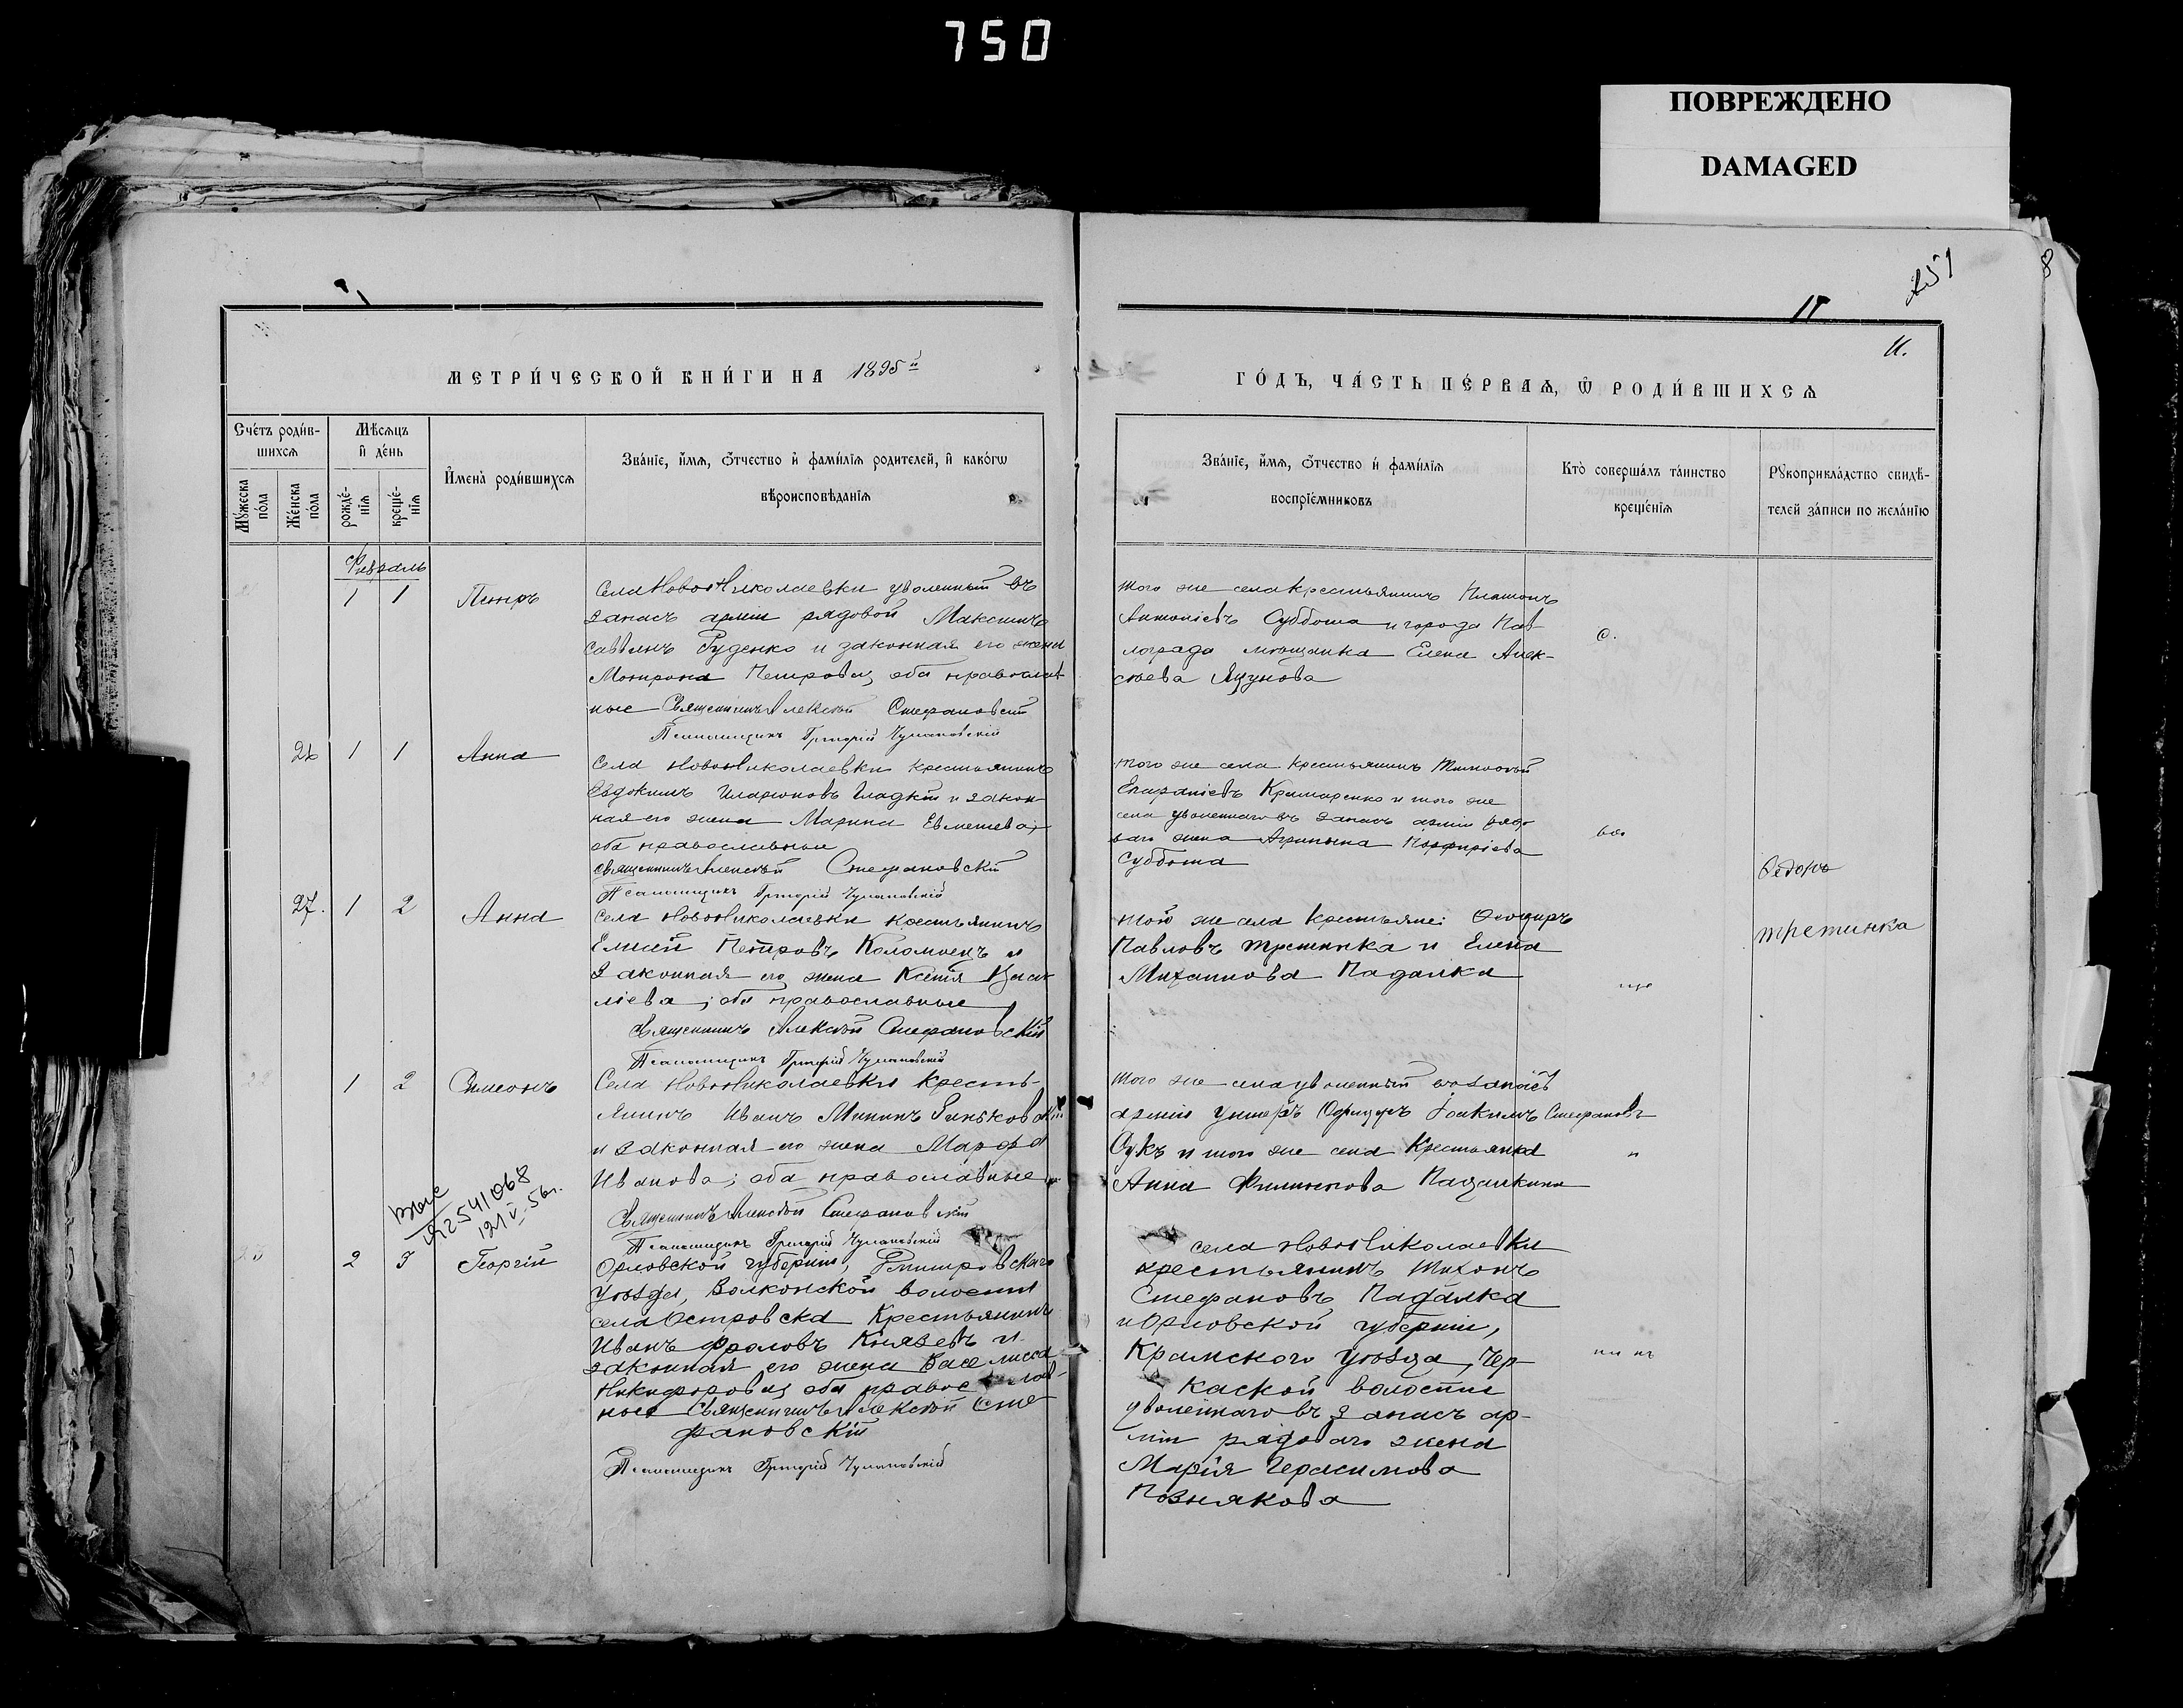 750
ПОВРЕЖДЕНО
DAMAGED
251
8
11.
МЕТРИ́ЧЕСКОЙ КНИ́ГИ НА 1895й
ГО́ДЪ, ЧА́СТЬ ПЕ́РВАѦ, Ѿ РОДИ́ВШИХСѦ
Сче́тъ роди́в-
шихсѧ
Мѣ́сѧцъ
и҆ де́нь
Мꙋ́жеска по́ла
Же́нска по́ла
рожде́-
нїѧ
креще́-
нїѧ
И҆мена̀ роди́вшихсѧ
Зва́нїе, и҆́мѧ, ѻ҆́тчество и҆ фами́лїѧ родителей, и҆ како́гѡ
вѣроисповѣ́данїѧ
Зва́нїе, и҆́мѧ, ѻ҆́тчество и҆ фами́лїѧ
воспрїе́мниковъ
Кто̀ соверша́лъ та́инство
креще́нїѧ
Рꙋкоприкла́дство свидѣ́-
телей за́писи по жела́нїю
Февраль
1 1 Петръ
Села НовоНиколаевки уволенный въ
запасъ арміи рядовой Максимъ
Саввинъ Руденко и законная его жена
Матрона Петрова; оба православ
ные Священникъ Алексѣй Стефановскій
Псаломщикъ Григорій
того же села крестьянинъ Платонъ
Антоніевъ Суббота и города Пав
лограда мѣщанка Елена Алек-
сѣева
26 1 1 Анна
Села НовоНиколаевки крестьянинъ
Евдокимъ Иларіоновъ Гладкій и закон-
ная его жена Марина
оба православные
Священникъ Алексѣй Стефановскій
Псаломщикъ Григорій
того же села крестьянинъ Тимоѳей
Епифаніевъ Крамаренко и того же
села уволеннаго въ запасъ арміи рядо
ваго жена Агрипина Порфиріева
Суббота
27. 1 2 Анна
Села НовоНиколаевки крестьянинъ
Елисей Петровъ Коломоецъ и
законная его жена Ксенія
оба православные
Священникъ Алексѣй Стефановскій
Псаломщикъ Григорій
того же села крестьяне:
Павловъ Третинка и Елена
Михаилова Падалка
третинка
1 2 Симеонъ
Села НовоНиколаевки кресть-
янинъ Иванъ Мининъ
и законная его жена Марфа
Иванова; оба православные
Священникъ Алексѣй Стефановскій
Псаломщикъ Григорій
того же села уволенный въ запасъ
арміи унтеръ Офицеръ Іоакимъ Стефановъ
и того же села Крестьянка
Анна Филиппова
2541068
2 3 Георгій
Орловской губерніи, Дмитровскаго
уѣзда, Волконской волости
села Островска Крестьянинъ
Иванъ Фроловъ Князевъ и
законная его жена Василисса
Никифорова; оба православ-
ные Священникъ Алексѣй Сте
фановскій
Псаломщикъ Григорій
села НовоНиколаевки
крестьянинъ Тихонъ
Стефановъ Падалка
и Орловской губерніи,
Крамского уѣзда, Чер
каской волости
уволеннаго въ запасъ ар-
міи рядоваго жена
Марія Герасимова
Познякова